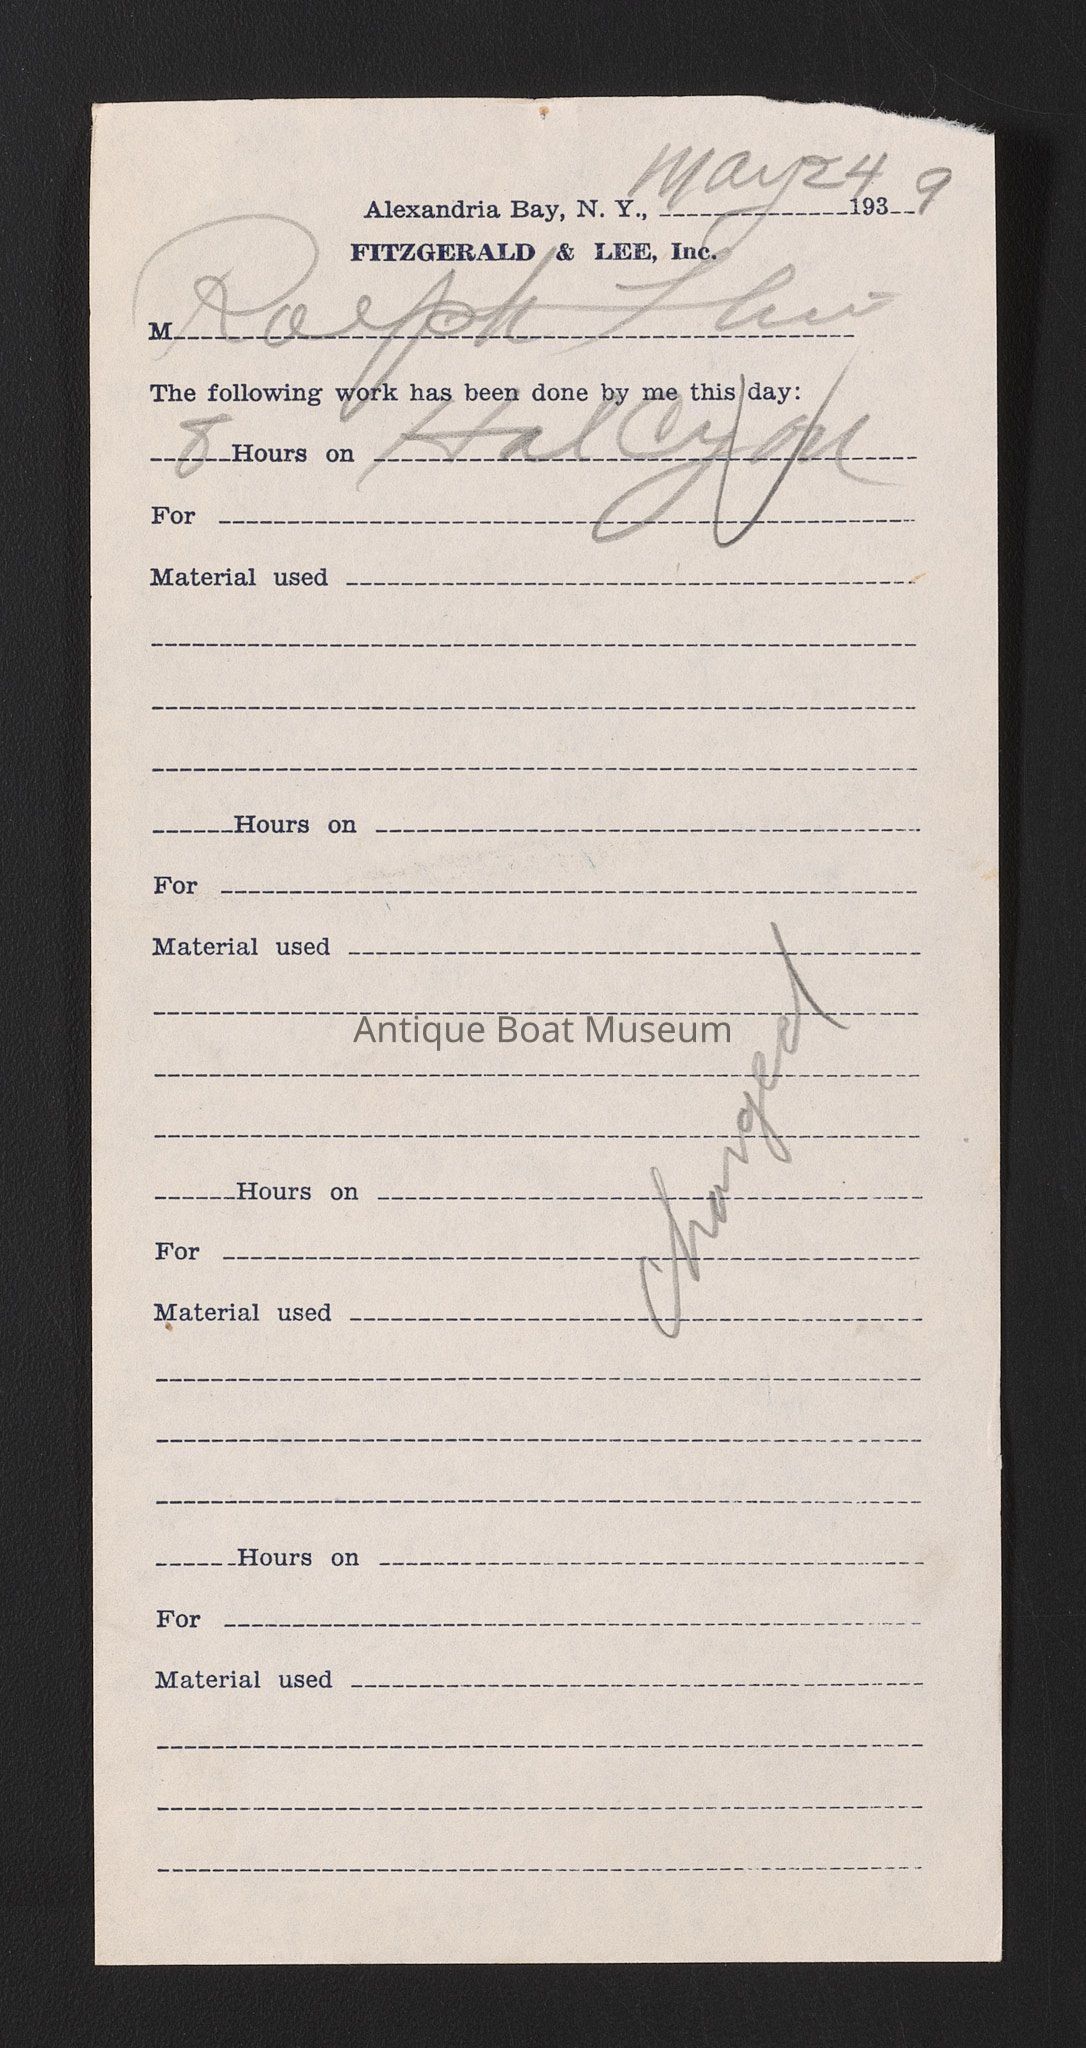 Alexandria Bay, N. Y., May 24 1939
FITZGERALD & LEE, Inc.
M Ralph
The following work has been done by me this day:
8 Hours on Halcyon
For
Material used
Hours on
For
Material used
Antique Boat Museum
Charged
Hours on
For
Material used
Hours on
For
Material used